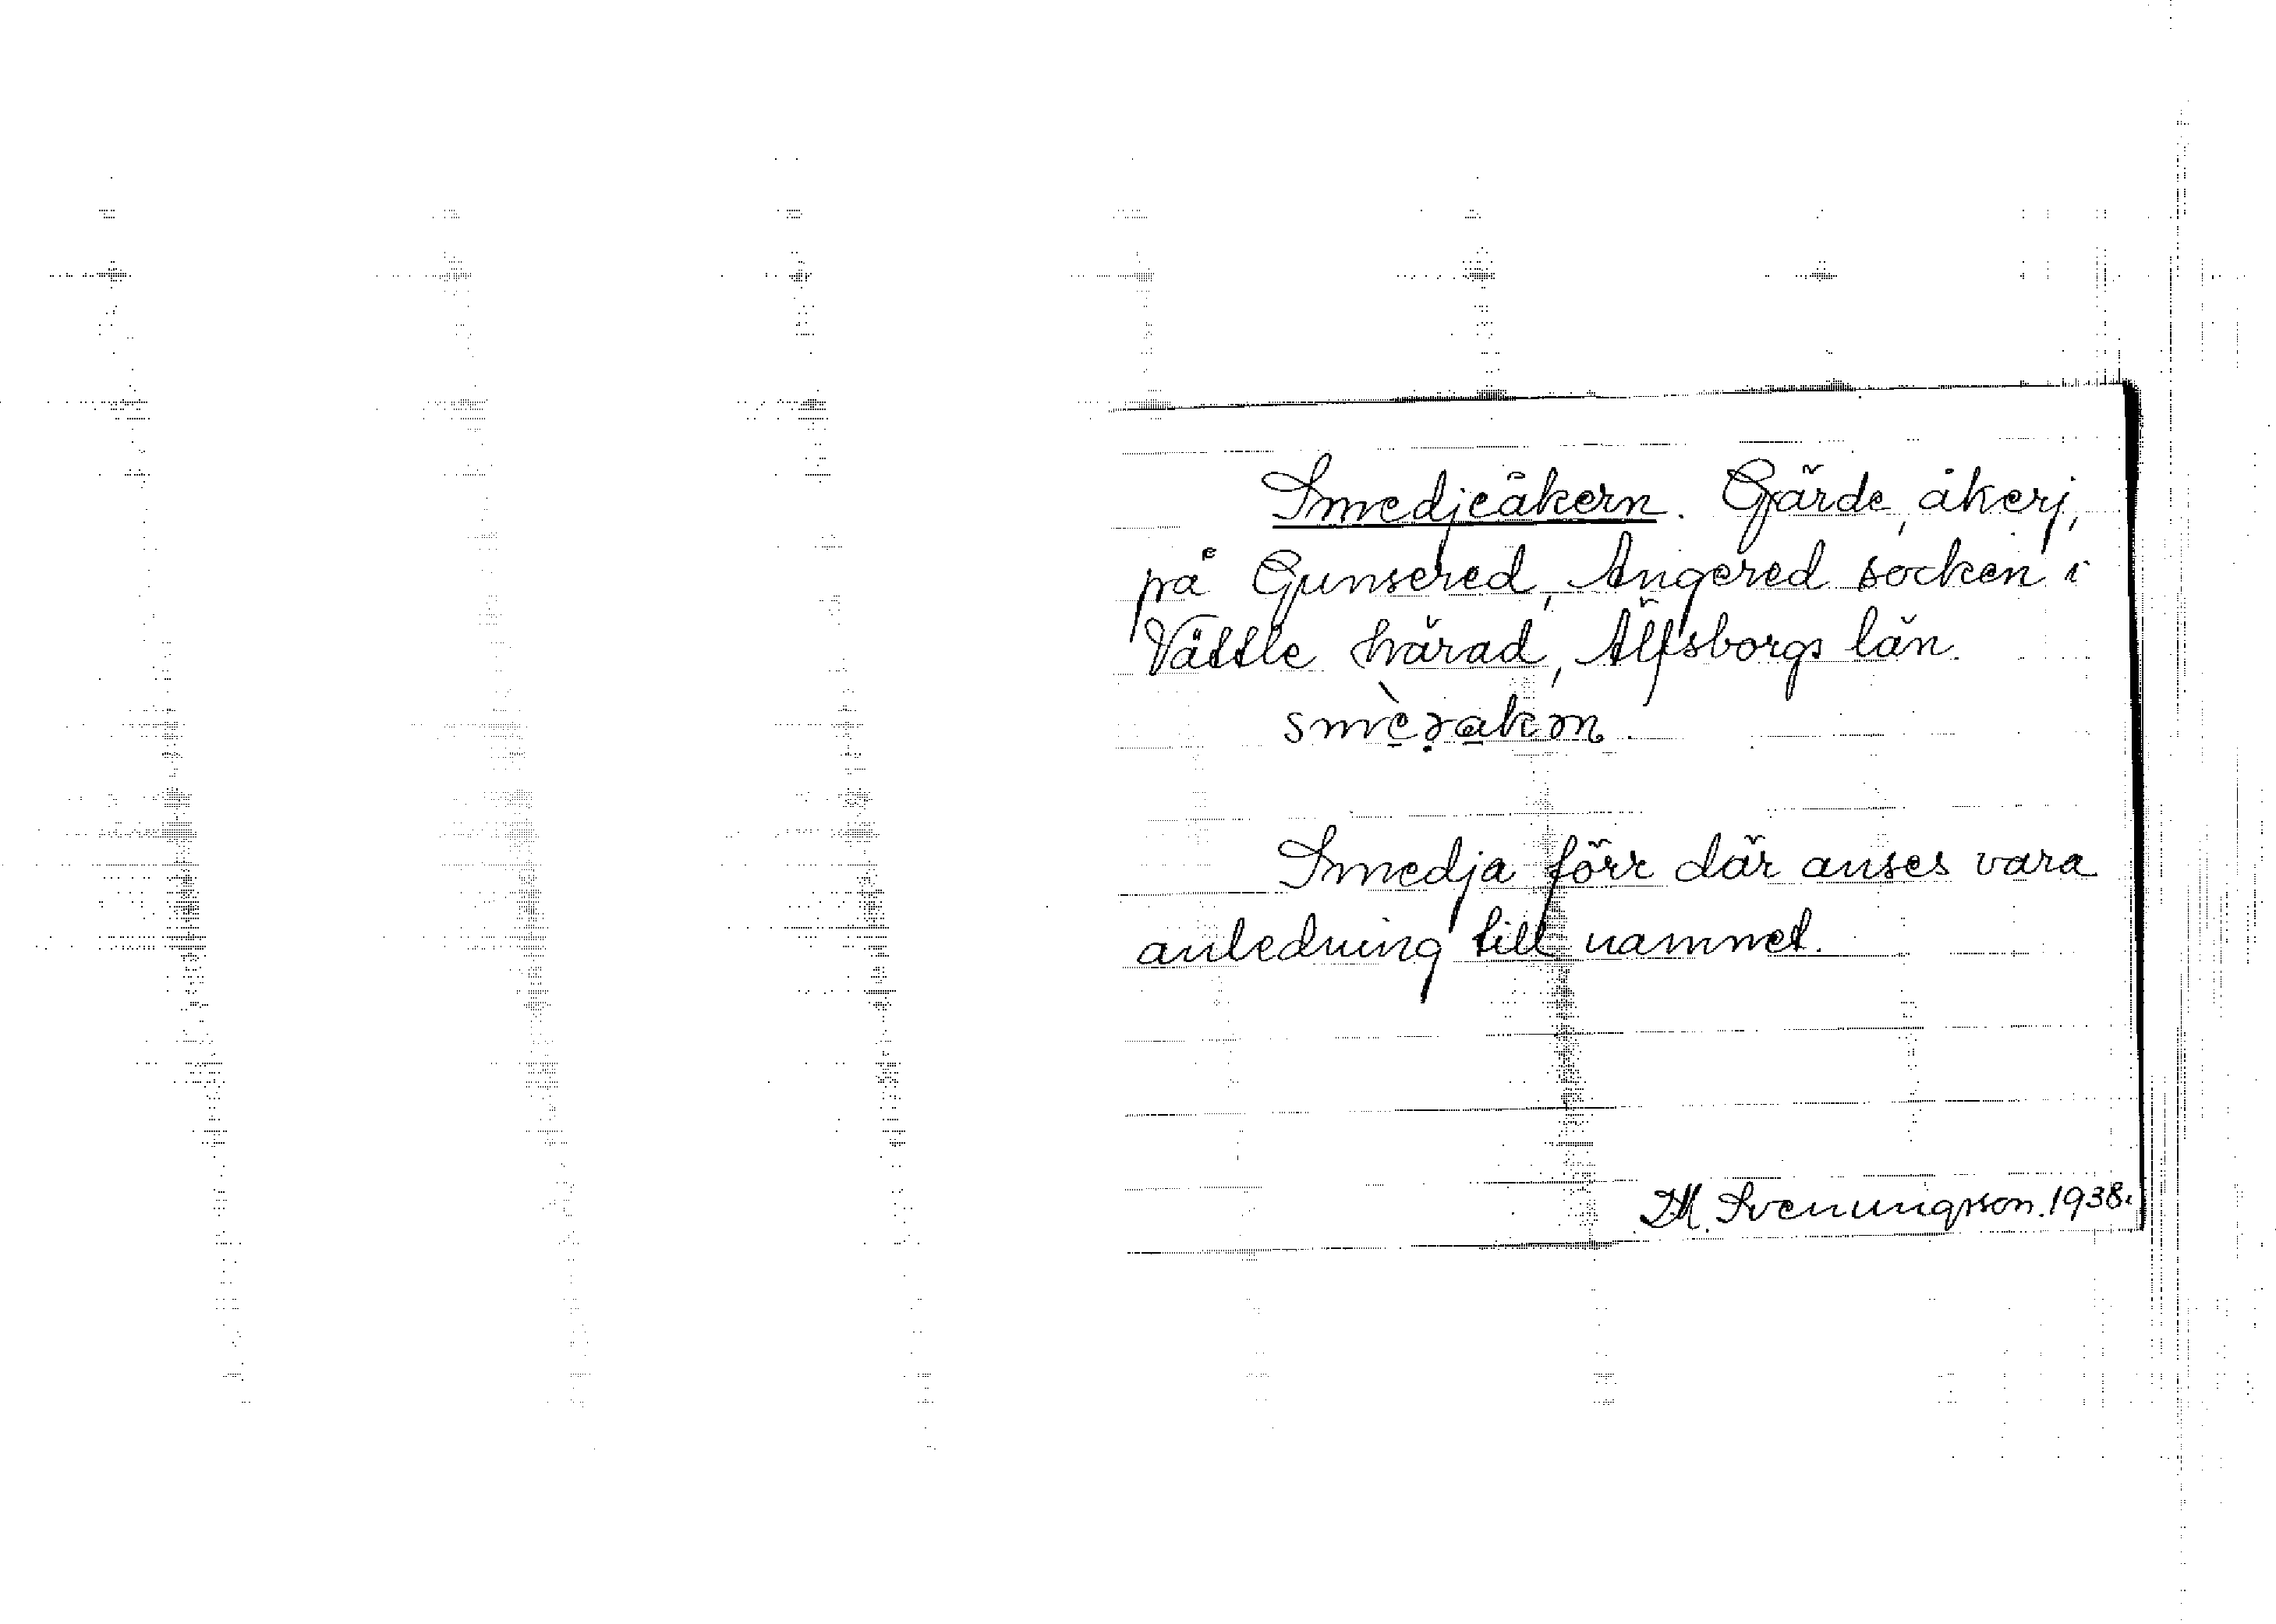 Smedjeåkern. Gärde, åkerj,
på Gunsered, Angered socken i
Vättle härad, Älfsborgs län.
smèr̥akɘn.
Smedja förr där anses vara
anledning till namnet.
D.M. Svenungsson. 1938.